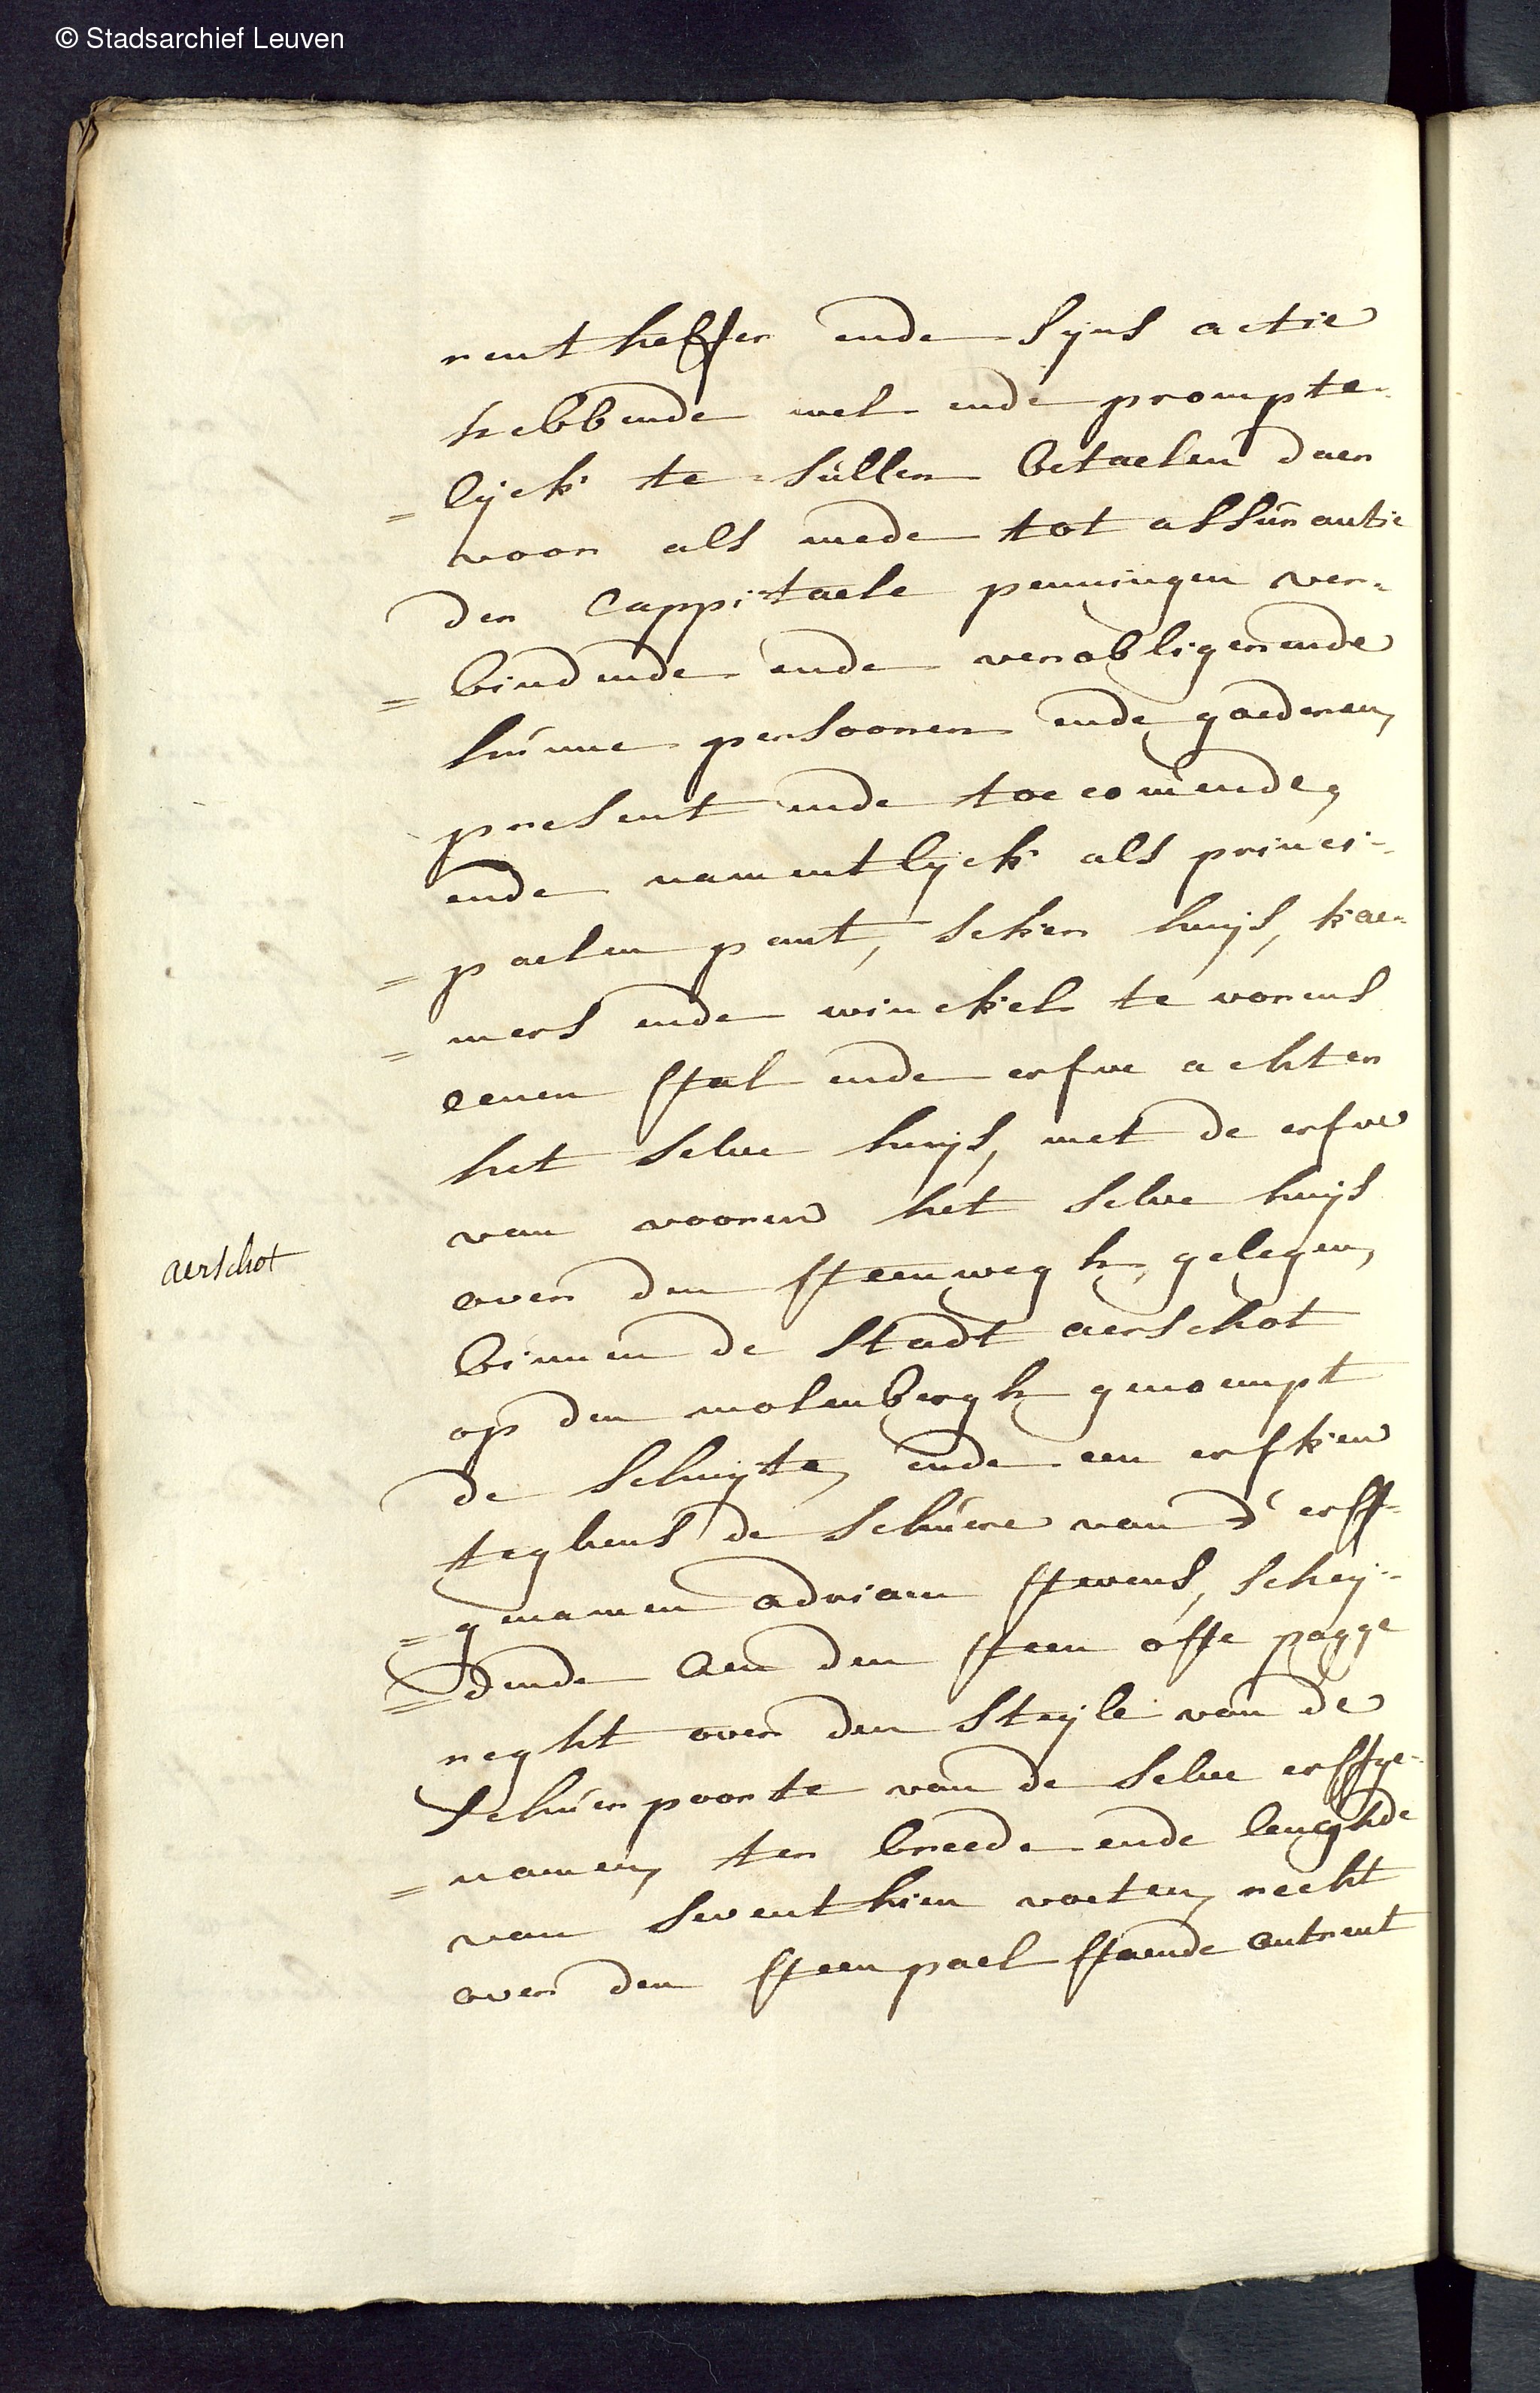 © Stadsarchief Leuven
rentheffer ende sijns actie
hebbende wel ende prompte-
= lijck te sullen betaelen daer
voor als mede tot assurantie
der Cappitaele penningen ver=
= bindende ende verobligerende
hunne persoonen ende goederen,
present ende toecomende,
ende namentlijck als princi-
= paelen pant, seker huijs, kae-
= mers ende winckel te vorens
eenen stal ende erfve achter
het selve huijs, met de erfve
van vooren het selve huijs
over den steenwegh, gelegen,
aerschot
binnen de Stadt aerschot
op den molenbergh genoempt
de schuijte, ende een erfken
teghens de schuere van d' erff-
= genamen adriaen stevens, scheij-
= dende aen den steen offe pagge
reght over den steijle van de
schuerpoorte van de selve erffge-
= namen, ter breede ende lenghde
van seventhien voeten, recht
over den steenpael staende ontrent